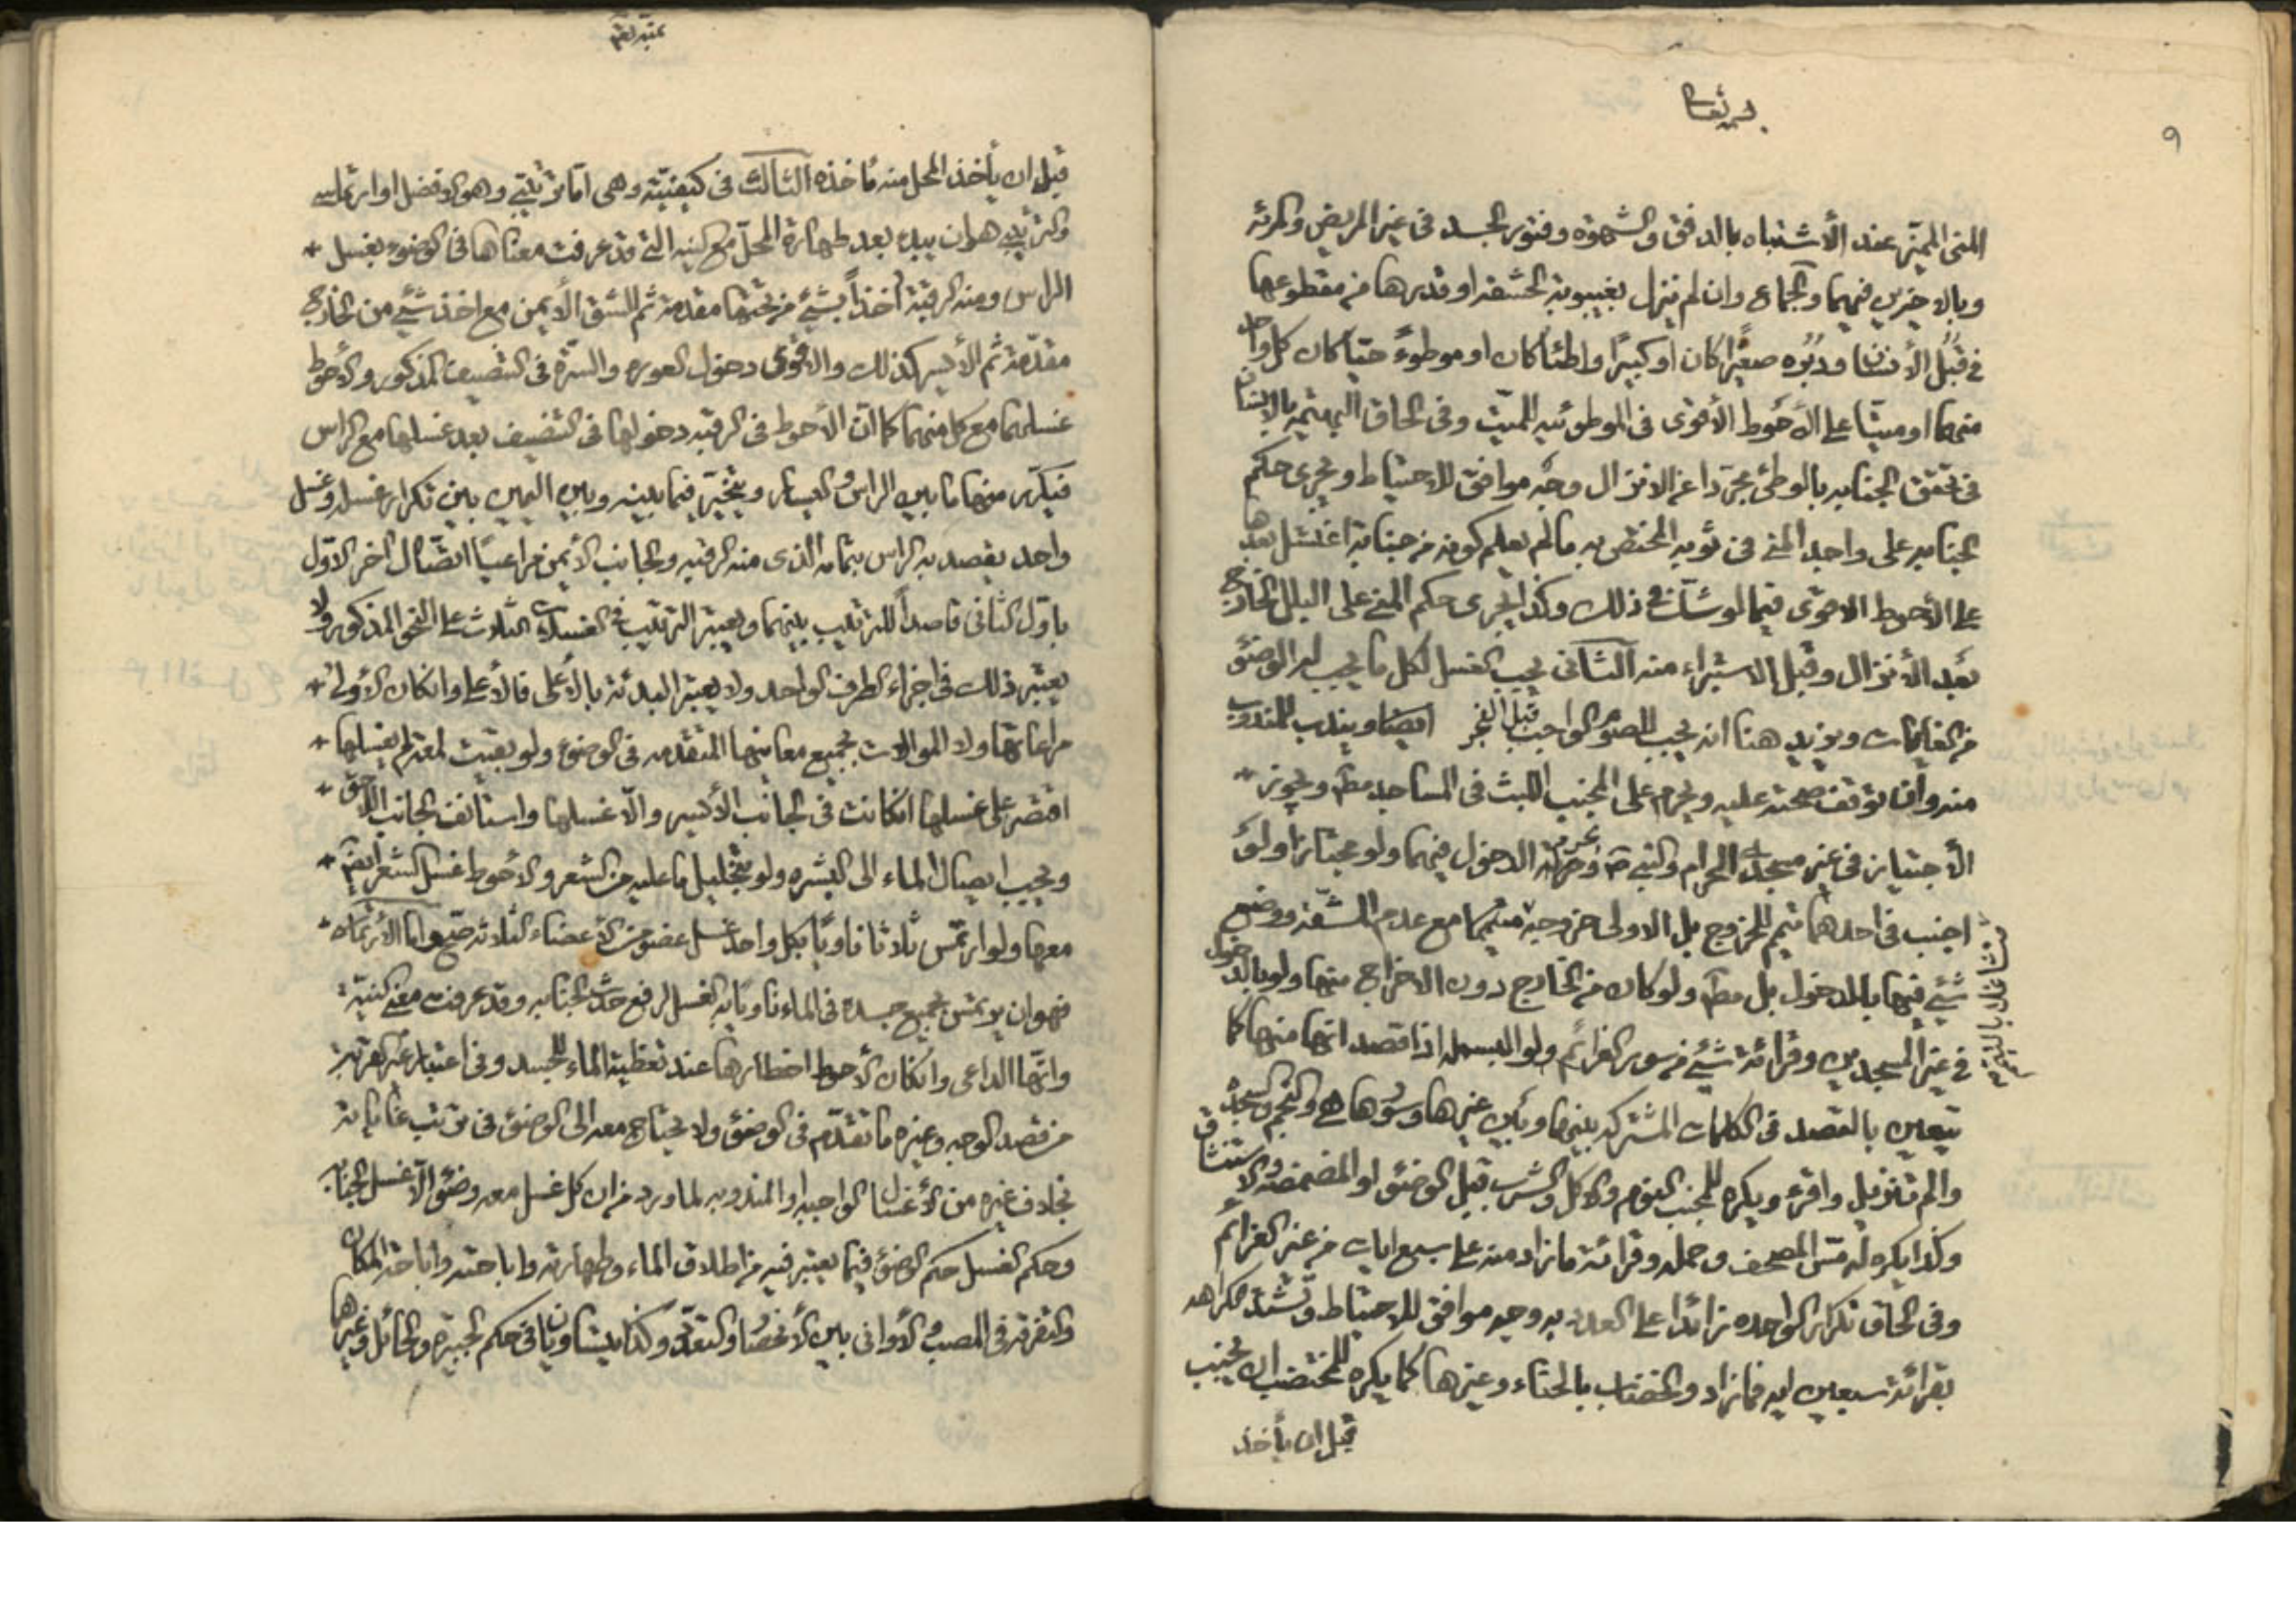 ٩
المنى المميّز عند الأشتباه بالدفق والشهوة وفتور الجسد فى غير المريض والمرئة
وبالاخيرين فيهما والجماع وان لم ينزل بغيبوبة الحشفه او قدرها من مقطوعها
فى قُبُل الأنسان ودبُره صغيراً كان او كبيرًا واطئاً كان او موطوءً حيّا كان كل واحد
منهما او ميتّا على الأحوط الأقوى فى الموطوئيه للميّت وفى الحاق البهيمة بالانسان
فى تحقق الجنابه بالوطئ مجرّدا عن الانزال وجه موافق للاحتياط ويجرى حكم
الجنابه على واجد المنى فى ثوبه المختص به مالم يعلم كونه من جنابة اغتسل بعدها
على الأحوط الاقوى فيما لو شكّ فى ذلك وكذا يجرى حكم المنى على البلل الخارج
بعد الأنزال وقبل الاستبراء منه الثانى يجب الغسل لكل ما يجب له الوضوء
من الغايات ويزيد هنا انه يجب للصوم الواجب قبل الفجر ايضا ويندب للمندوب
منه وان توقف صحته عليه ويحرم على المجنب اللبث فى المساجد مطم ويجوز
الأجتياز فى غير مسجدى الحرام والنبى ص وتحريم الدخول فيهما ولو مجتازا ولو
اجنب فى احدهما تيمم للخروج بل الاولى خروجه متيمما مع عدم المشقة ووضع
شيئ فيها بالدخول بل مطم ولو كان من الخارج دون الاخراج منها ولو بالدخول
فى غير المسجدين وقرائة شيئ من سور العزائم ولو البسمله اذا قصد انها منها كما
يتعين بالقصد فى الكلمات المشتركه بينها وبين غيرها وسورها هى والنجم والسجده
والم تنزيل واقرء ويكره للمجنب النوم والاكل والشرب قبل الوضوء او المضمضه والاستنشاق
وكذا يكره له مسّ المصحف وحمله وقرائة مازاد منه على سبع ايات من غير العزائم
وفى الحاق تكرار الواحده زائدًا على العدد به وجه موافق للاحتياط وتشتد الكراهه
بقرائة سبعين ايه فمازاد والخضاب بالحناء وغيرها كما يكره للمختضب ان يجنب
قبل ان يأخذ
قبل ان يأخذ المحل منه مأخذه الثالث فى كيفيّته وهى امّا ترتيبى وهو الافضل او ارتماسى
والترتيبى هو ان يبدء بعد طهارة المحلّ مع النيه التى قد عرفت معناها فى الوضوء بغسل
الراس ومنه الرقبة آخذاً بشيئ من تحتها مقدمة ثم للشق الأيمن مع اخذ شيئ من الخارج
مقدّمة ثم الأيسر كذلك والاقوى دخول العوره والسرّة فى التنصيف المذكور والأحوط
غسلهما مع كل منهما كما انّ الأحوط فى الرقبه دخولها فى التنصيف بعد غسلها مع الراس
فيكرّر منها ما بين الراس واليسار ويتخيّر فيما بينه وبين اليمين بين تكرار غسله وغسل
واحد يقصد به الراس بتمامه الذى منه الرقبه والجانب الأيمن مراعيًا اتصال آخر الاوّل
باوّل الثانى قاصداً للترتيب بينهما ويعتبر الترتيب فى الغسلات الثلاث على النحو المذكور ولا
يعتبر ذلك فى اجزاء الطرف الواحد ولا يعتبر البدئة بالأعلى فالأعلى وانكان الأولى
مراعاتها ولا الموالات بجميع معانيها المتقدمه فى الوضوء ولو بقيت لمعة لم يغسلها
اقتصر على غسلها انكانت فى الجانب الأيسر والّا غسلها واستانف الجانب اللاحق
ويجب ايصال الماء الى البشره ولو بتخليل ما عليه من الشعر والأحوط غسل الشعر ايضم
معها ولو ارتمس ثلاثا ناويًا بكل واحد غسل عضو من الأعضاء الثلاثه صحّ واما الأرتماسى
فهو ان يرتمس بجميع جسده فى الماء ناويًا به الغسل لرفع حدث الجنابه وقد عرفت معنى النيّة
وانّها الداعى وانكان الأحوط اخطارها عند تغطية الماء للجسد وفى اعتبار غير القربة
من قصد الوجه وغيره ما تقدّم فى الوضوء ولا يحتاج معه الى الوضوء فى ترتب غاياته
بخلاف غيره من الأغسال الواجبه او المندوبه لما ورد من ان كل غسل معه وضوء الّا غسل الجنابه
وحكم الغسل حكم الوضوء فيما يعتبر فيه من اطلاق الماء وطهارته واباحته واباحة المكان
والتفرقه فى المصب والأوانى بين الأنحصار والتعدّد وكذا يتساويان فى حكم الجبيرة والحائل وغيرها